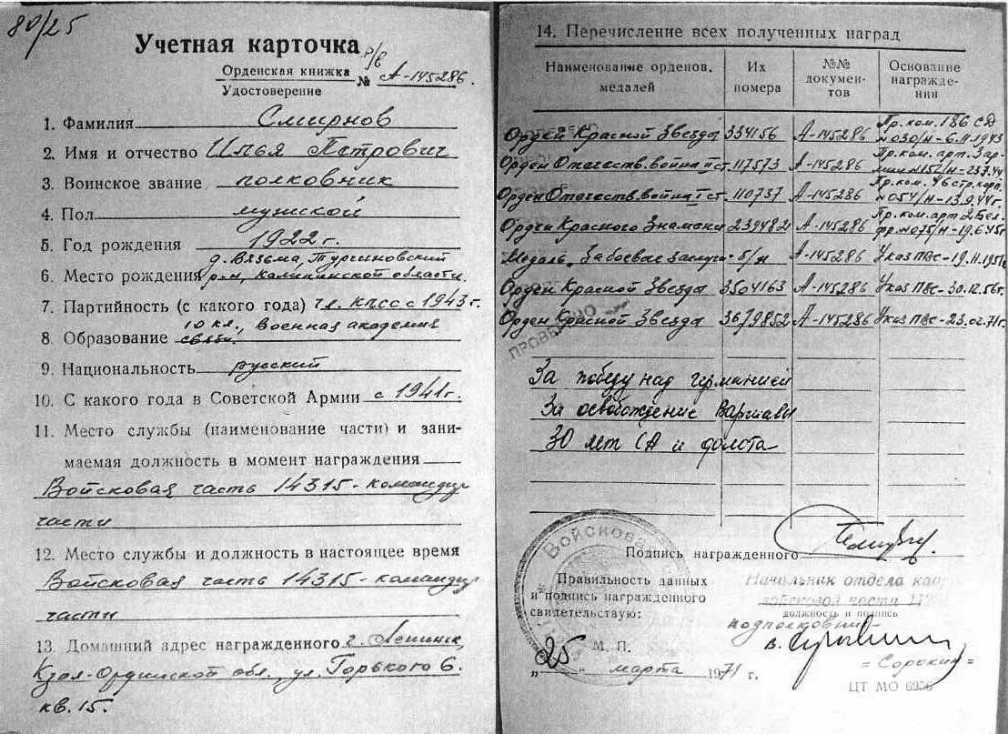 80/25
Учетная карточка
Орденская книжка
Удостоверение № А-145286.
1. Фамилия Смирнов
2. Имя и отчество Илья Петрович
3. Воинское звание полковник
4. Пол мужской
5. Год рождения 1922 г.
д. Вязьма, Тургиновский
6. Место рождения р-н, Калининской области.
7. Партийность (с какого года) чл. КПСС с 1943 г.
10 кл., Военная академия
8. Образование связи.
9. Национальность русский
10. С какого года в Советской Армии с 1941 г.
11. Место службы (наименование части) и зани-
маемая должность в момент награждения
Войсковая часть 14315 - командир
части
12. Место службы и должность в настоящее время
Войсковая часть 14315 - командир
части
13. Домашний адрес награжденного г. Ленинск,
Кзыл-Ординской обл., ул. Горького 6.
кв. 15.
14. Перечисление всех полученных наград
Наименование орденов, медалей
Их номера
№№ документов
Основание награждения
Орден Красной Звезды 334156 А-145286 Пр. ком. 186 СД №030/н - 6.11.
Орден Отечеств. войны ст. 117573 А-145286 Пр. ком. арт. - 23.7.44
Орден Отечеств. войны ст. 110737 А-145286 Пр. ком. 46 стр. кор. №054/н - 13.9.44г.
Орден Красного Знамени А-145286 Пр. ком. арт. 2 Бел. фр. №075/н - 19.6.45г
Медаль "За боевые заслуги" б/н А-145286 Указ ПВС - 19.11.1951г.
Орден Красной Звезды 3504163 А-145286 Указ ПВС - 30.12.56г.
Орден Красной Звезды 3679852 А-145286 Указ ПВС - 23.02.71г.
ПРОВЕРЕНО
За победу над германией
За освобождение Варшавы
30 лет СА и флота
Войсковая
Подпись награжденного
Правильность данных
и подпись награжденного
свидетельствую:
Начальник отдела
войсковой части
должность и подпись
подполковник
М. П.
"25" марта 1971 г.
= Сорокин =
ЦТ МО